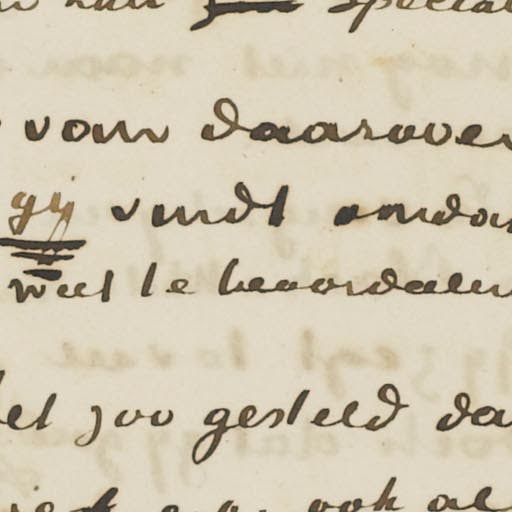 special
vom daarover
gij vindt omdat
weet te beoordeelen
het zoo gesteld da
ook al